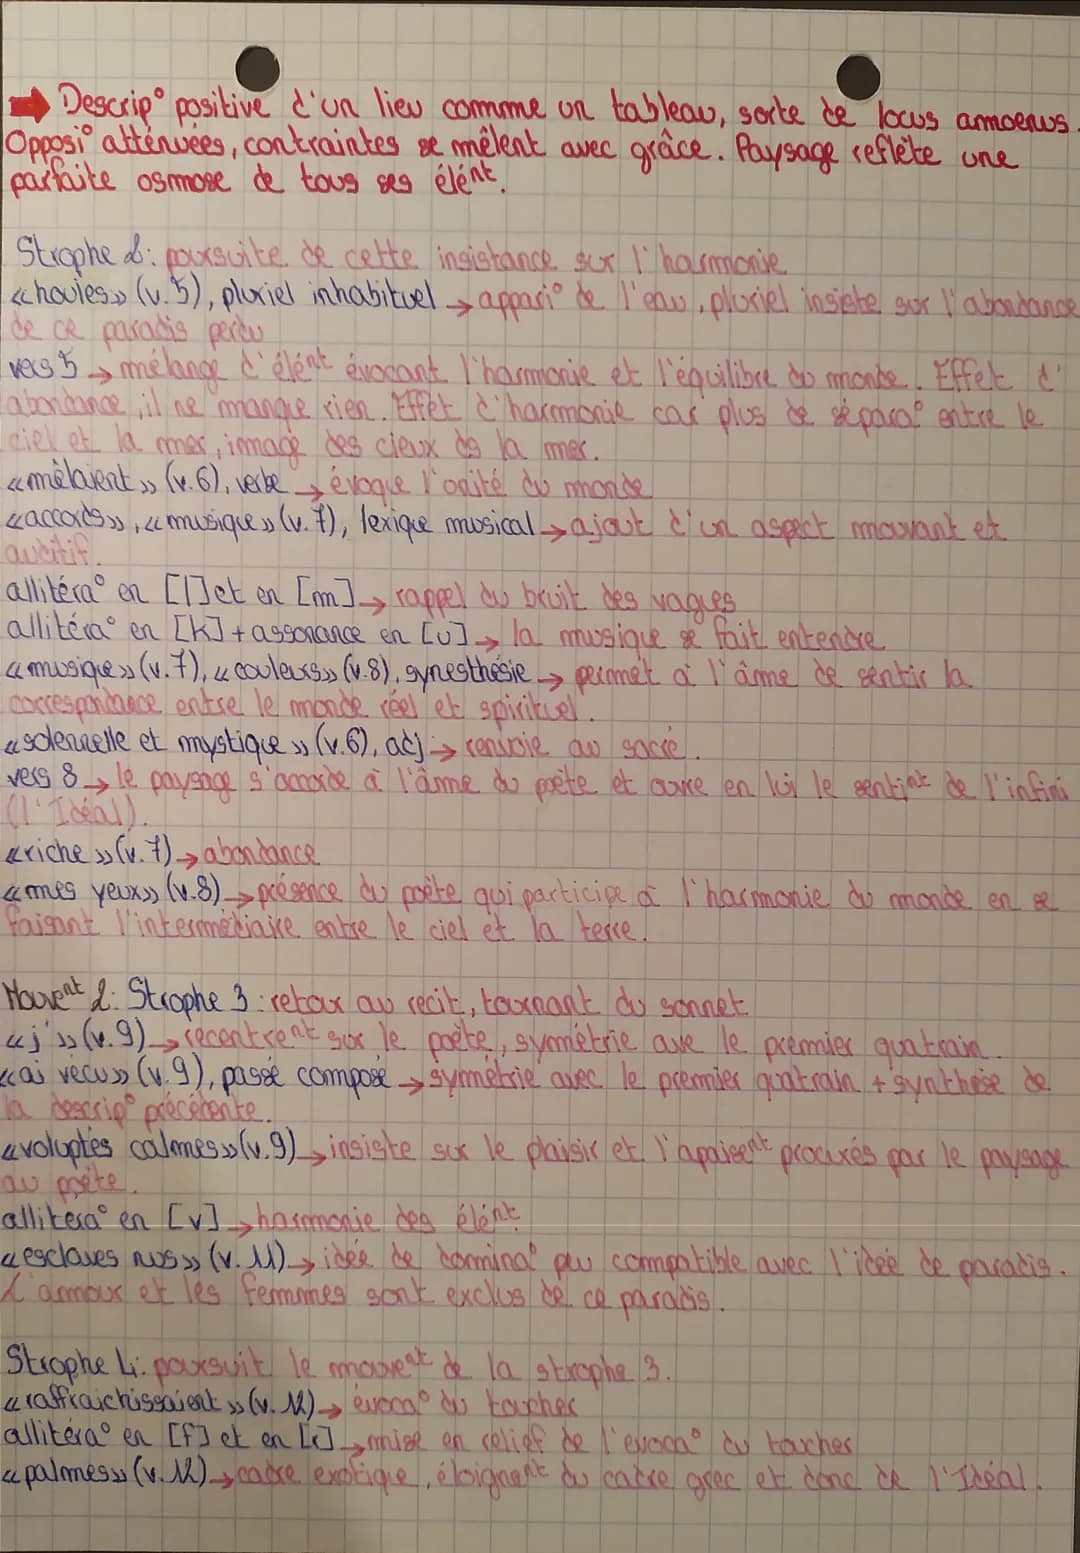 ➡ Descrip° positive d'un lieu comme un tableau, sorte de locus amoenus.
Opposi° atténuées, contraintes se mêlent avec grâce. Paysage reflète une
parfaite osmose de tous ses élént.
Strophe 2: poursuite de cette insistance sur l'harmonie
«houles» (v.5), pluriel inhabituel → appari° de l'eau, pluriel insiste sur l'abondance
de ce paradis perdu
vers 5 → mélange d'élént évocant l'harmonie et l'équilibre du monde. Effet d'
abondance, il ne manque rien. Effet d'harmonie car plus de sépara° entre le
ciel et la mer, image des cieux ds la mer.
«mêlaient» (v.6), verbe → évoque l'unité du monde
«accords», «musique» (v.7), lexique musical → ajout d'un aspect mouvant et
auditif.
allitéra° en [l] et en [m] → rappel du bruit des vagues
allitéra° en [k] + assonance en [u] → la musique se fait entendre
«musique» (v.7), «couleurs» (v.8), synesthésie → permet à l'âme de sentir la
correspondance entre le monde réel et spirituel.
«solennelle et mystique» (v.6), adj → renvoie au sacré.
vers 8 → le paysage s'accorde à l'âme du poète et ouvre en lui le sentint de l'infini
(l'Idéal).
«riche» (v.7) → abondance
«mes yeux» (v.8) → présence du poète qui participe à l'harmonie du monde en se
faisant l'intermédiaire entre le ciel et la terre.
Mouvent 2: Strophe 3: retour au recit, tournant du sonnet
«j'» (v.9) → recentrent sur le poète, symétrie ave le premier quatrain.
«ai vécu» (v.9), passé composé → symétrie avec le premier quatrain + synthèse de
la descrip° précédente.
«voluptés calmes» (v.9) → insiste sur le plaisir et l'apaisent procurés par le paysage
au poète.
allitéra° en [v] → harmonie des élént
«esclaves nus» (v.11) → idée de domina° peu compatible avec l'idée de paradis.
L'amour et les femmes sont exclus de ce paradis.
Strophe 4: poursuit le mouvent de la strophe 3.
«raffraichissaient» (v.12) → évoca° du toucher
allitéra° en [f] et en [r] → mise en relief de l'evoca° du toucher
«palmes» (v.12) → cadre exotique, éloignent du cadre grec et donc de l'Idéal.